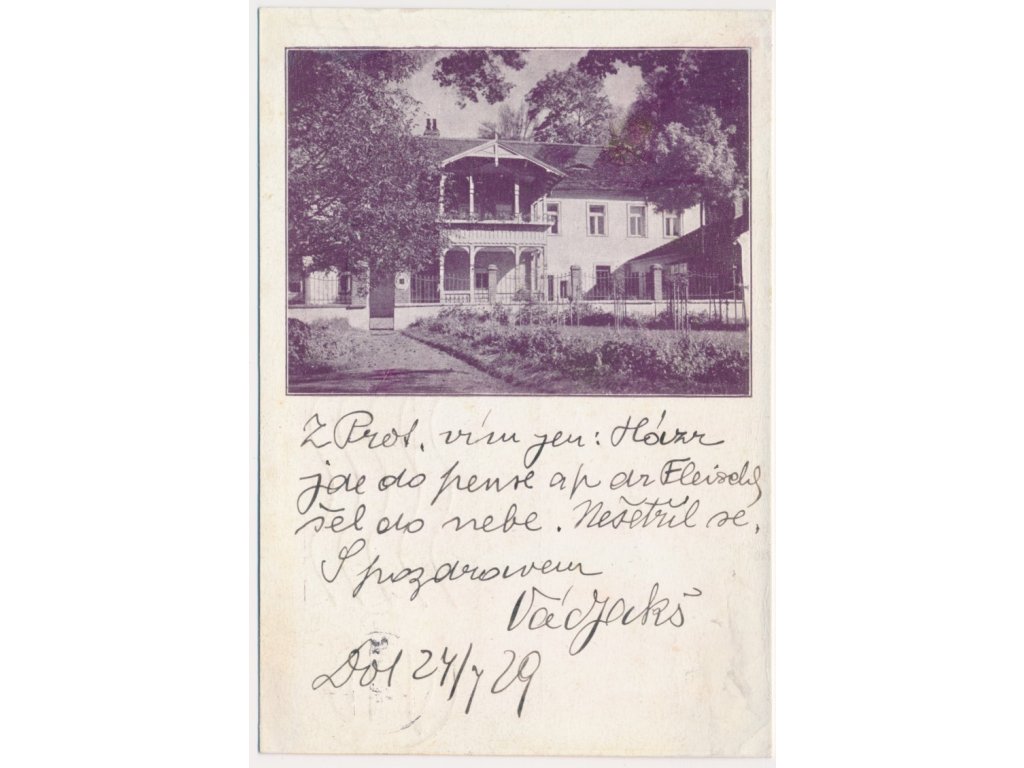 Z Prot. vím jen: Házr
jde do pense a p dr Fleischl
šel do nebe. Nešetřil se.
S pozdravem
Jakš
Dol 24/7 29